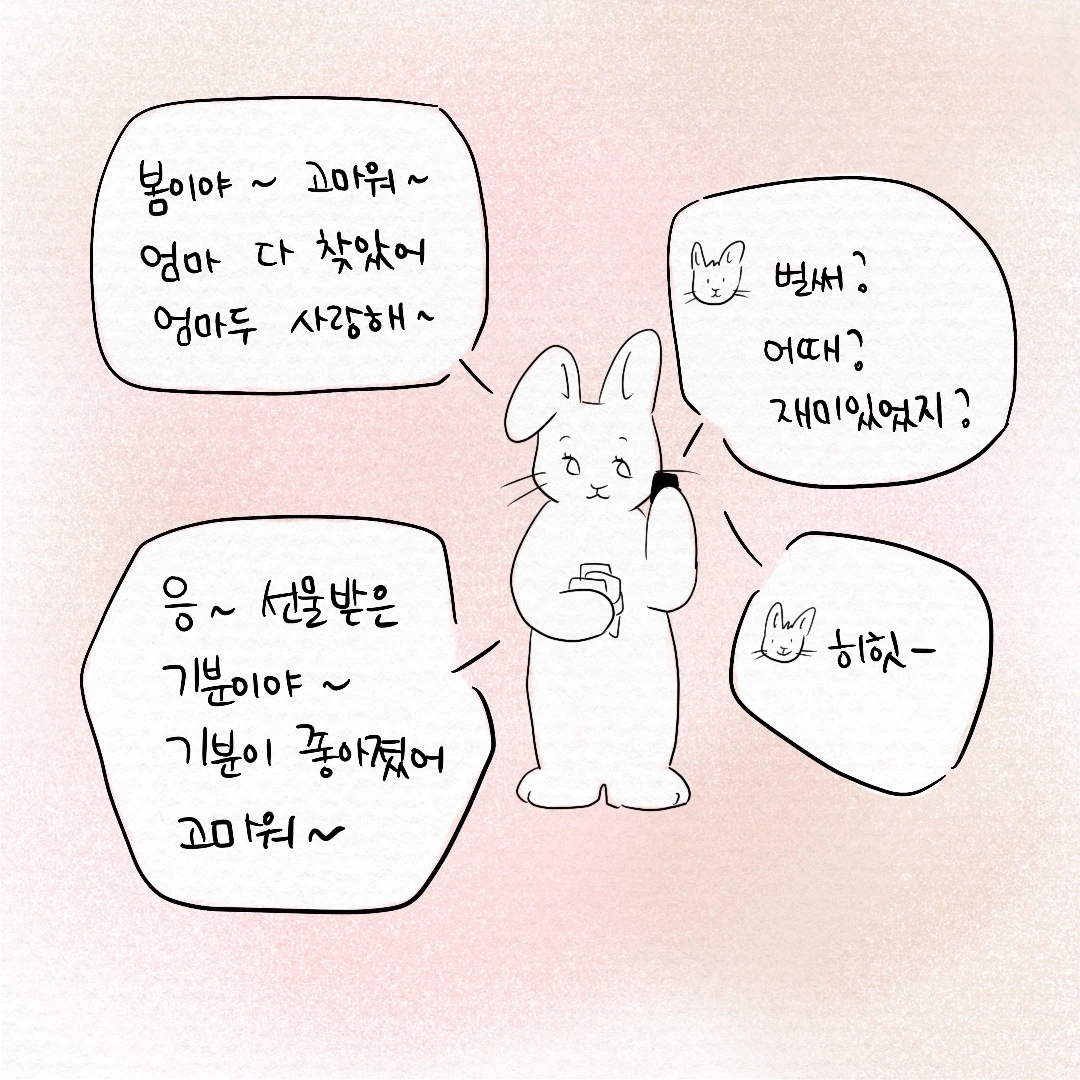 봄이야~ 고마워~
엄마 다 찾았어
엄마두 사랑해~
벌써?
어때?
재미있었지?
응~ 선물받은
기분이야~
기분이 좋아졌어
고마워~
히힛-